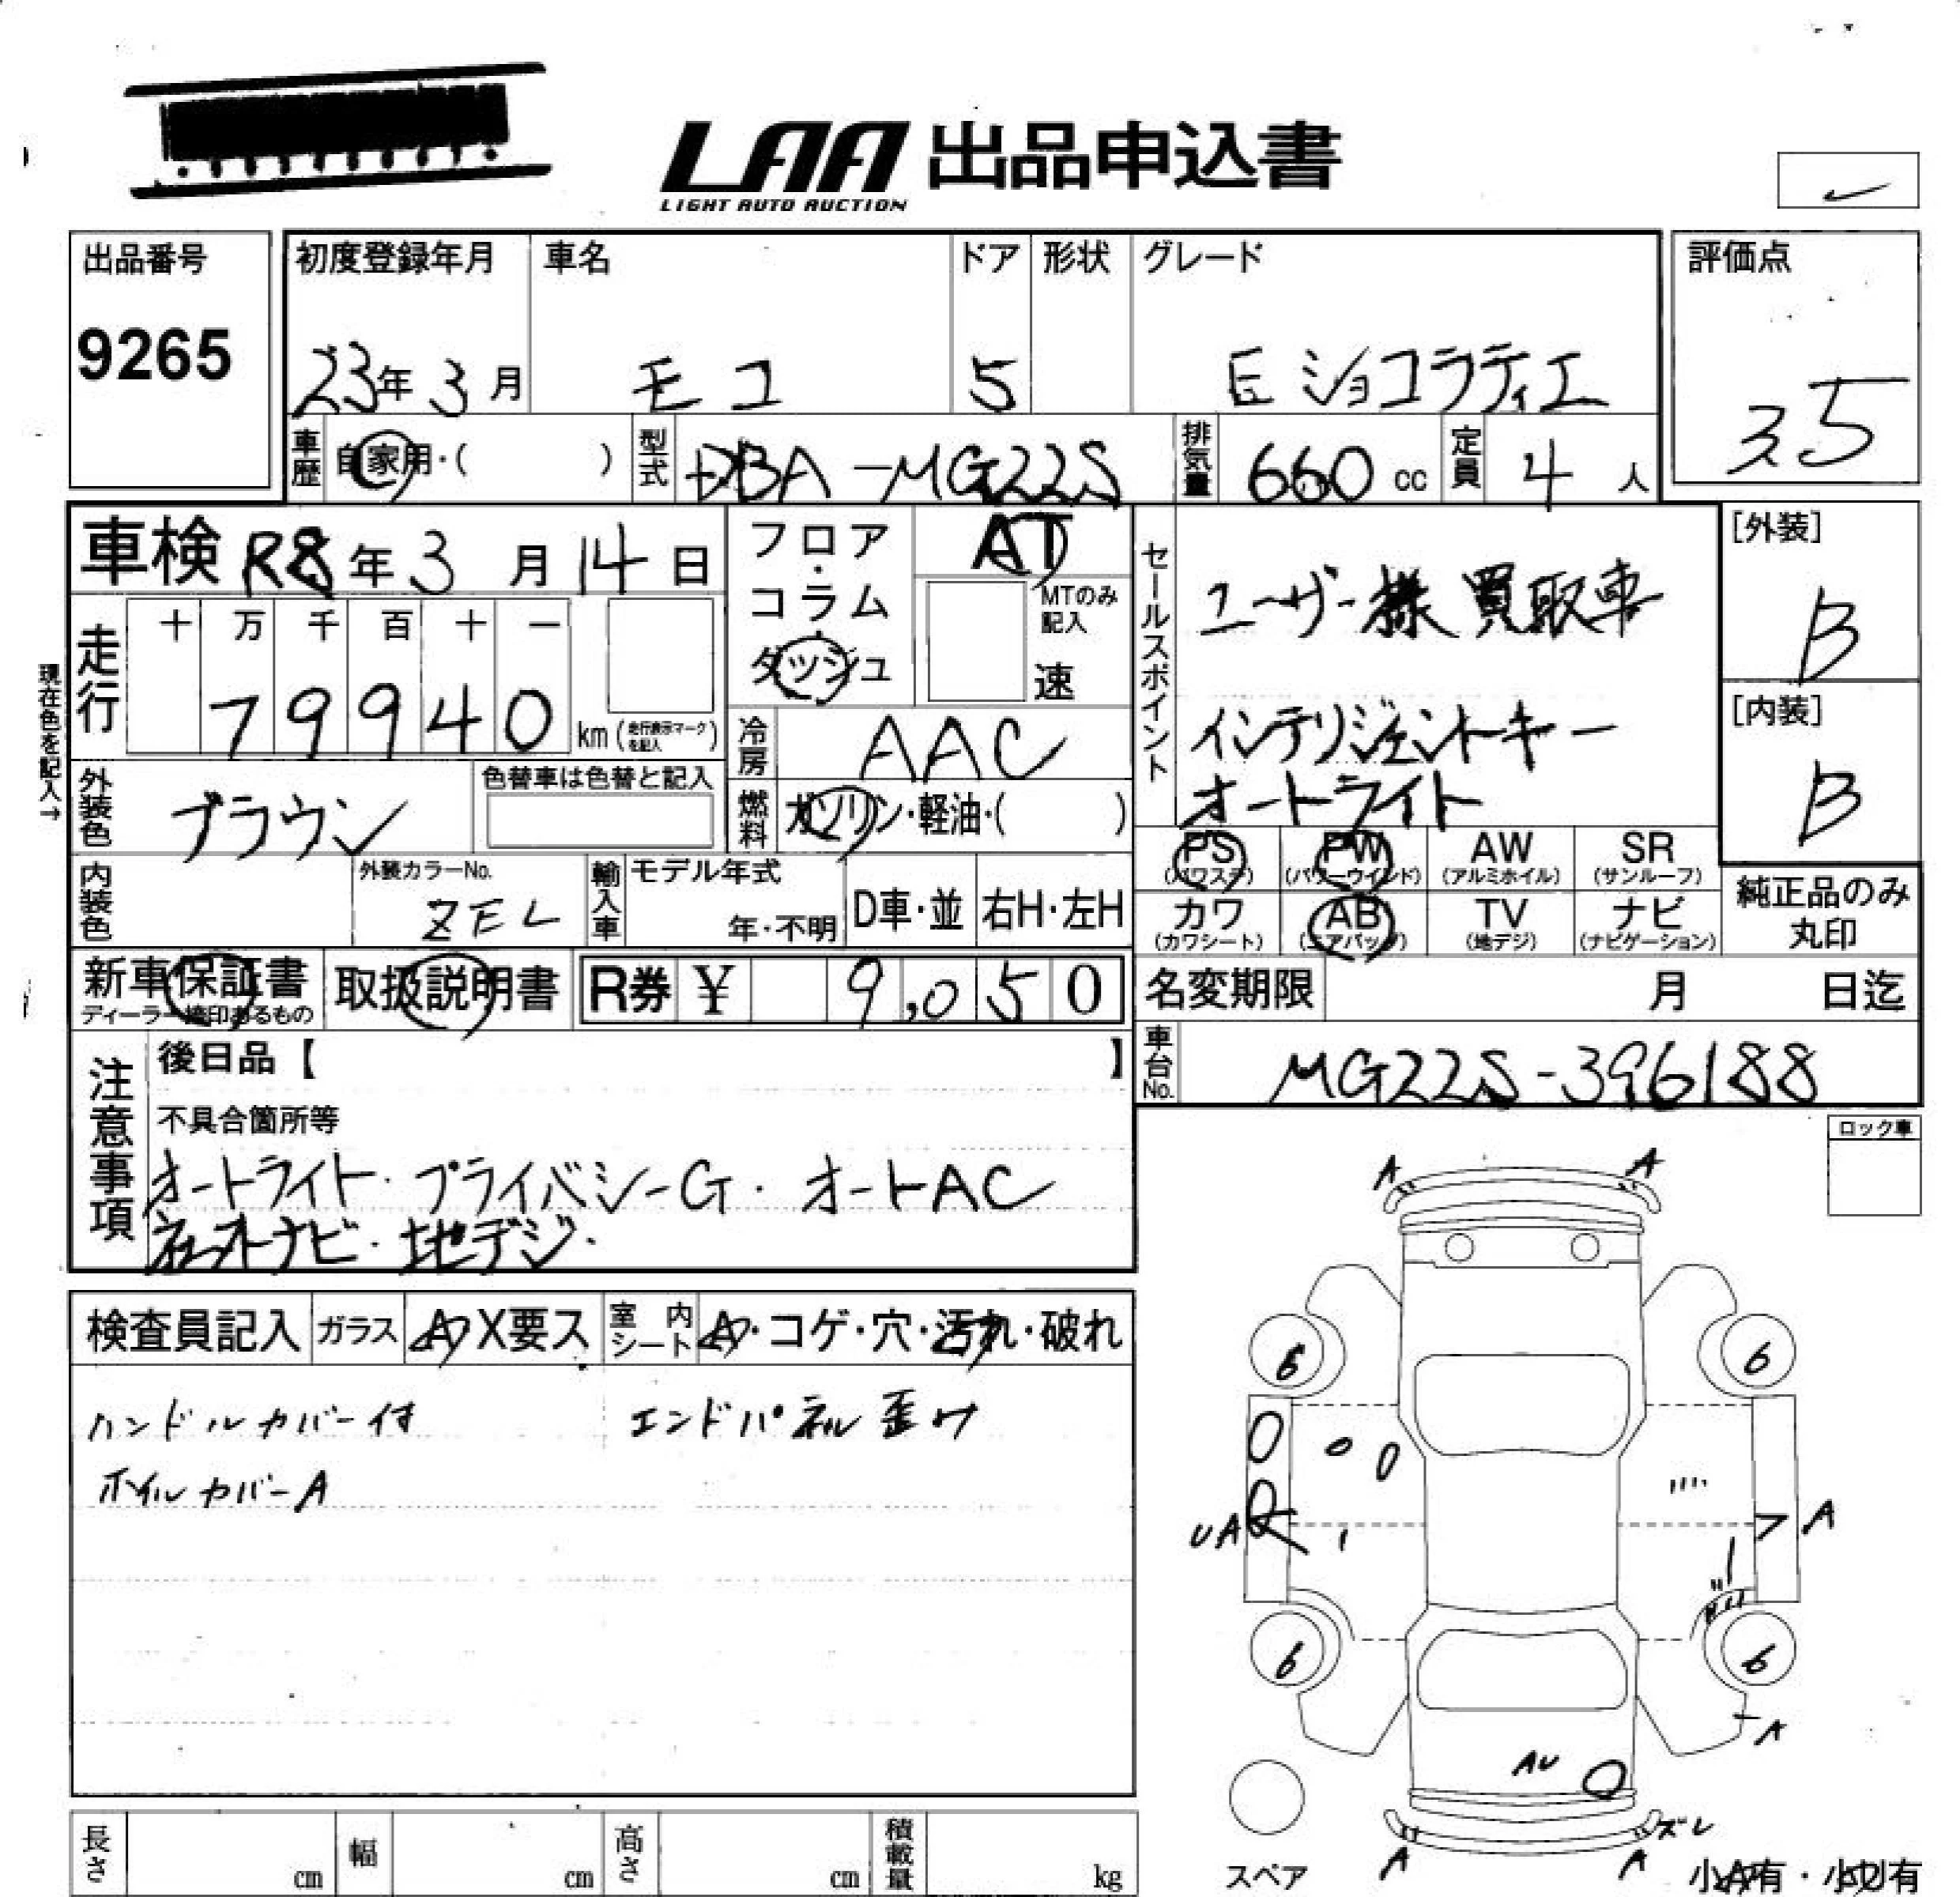 LAA 出品申込書
LIGHT AUTO AUCTION
出品番号
9265
初度登録年月 車名 ドア 形状 グレード
23年 3月 モコ 5 Eショコラティエ
評価点
35
車歴 自家用・( ) 型式 DBA-MG22S 排気量 660 cc 定員 4 人
車検 R8年 3月 14日
フロア・コラム・ダッシュ
AT
MTのみ記入
速
セールスポイント
ユーザー様買取車
インテリジェントキー
オートライト
[外装]
B
[内装]
B
現在色を記入→
走行 十 万 千 百 十 一
79940 km(走行表示マークを記入)
冷房 AAC
外装色 ブラウン
色替車は色替と記入
燃料 ガソリン・軽油・( )
PS (パワステ) PW (パワーウインド) AW (アルミホイル) SR (サンルーフ)
カワ (カワシート) AB (エアバッグ) TV (地デジ) ナビ (ナビゲーション)
純正品のみ丸印
内装色 外装カラーNo. ZEL 輸入車 モデル年式 年・不明 D車・並 右H・左H
新車保証書 取扱説明書 R券 ¥ 9,050
ディーラー捺印あるもの
名変期限 月 日迄
車台No. MG22S-396188
注意事項
後日品【 】
不具合箇所等
オートライト・プライバシーG・オートAC
社外ナビ・地デジ・
ロック車
検査員記入 ガラス A X要ス 室内シート A・コゲ・穴・汚れ・破れ
ハンドルカバー付 エンドパネル歪み
ホイルカバーA
A A
6 6
UA A
6 6
A
AU
ズレ
A A
スペア
小A有・小U有
長さ cm 幅 cm 高さ cm 積載量 kg